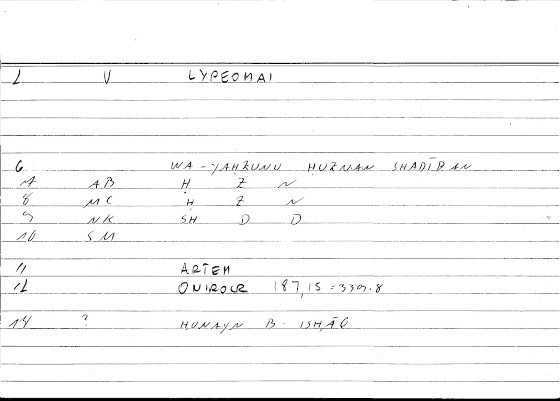 1 V LYPEOMAI
6 WA-YAḤZUNU ḤUZNAN SHADĪDAN
7 AB Ḥ Z N
8 MC Ḥ Z N
9 NK SH D D
10 SM
11 ARTEM
12 ONIROCR 187,15 = 339.8
14 ? ḤUNAYN B. ISḤĀQ